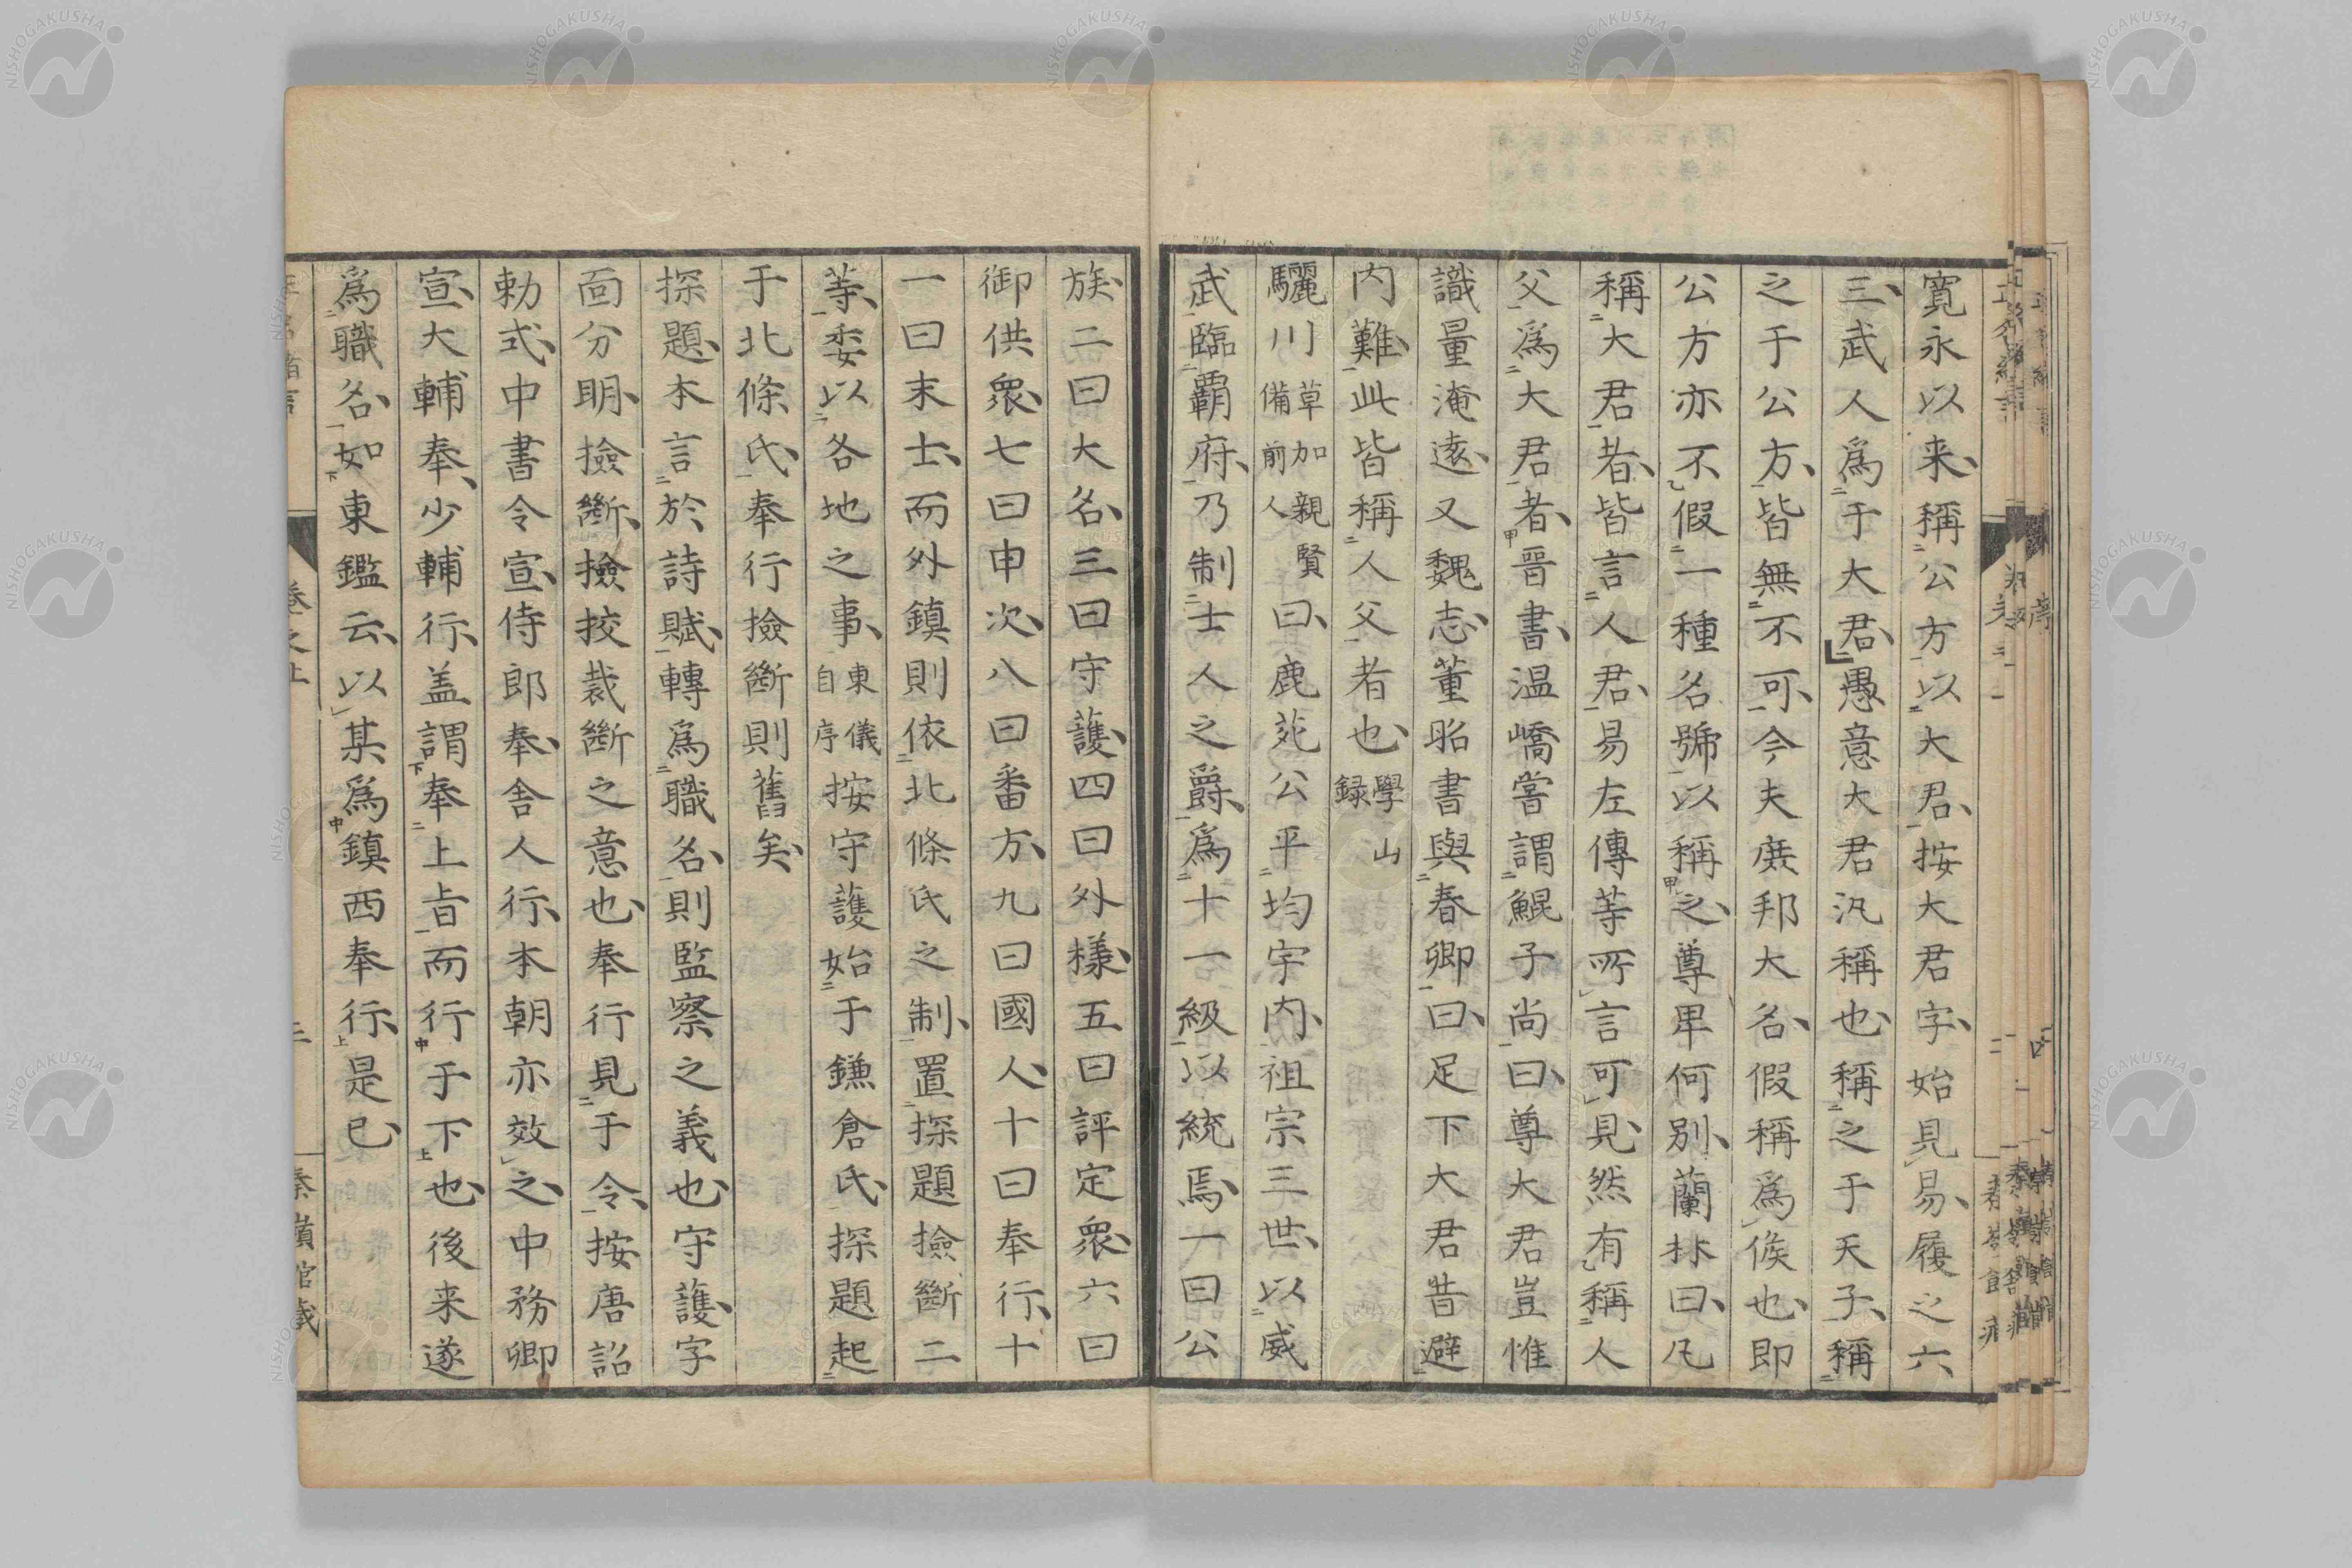 寛永以来、稱公方以大君、按大君字、始見易、履之六
三、武人為于大君、愚意大君汎稱也、稱之于天子、稱
之于公方、皆無不可、今夫廣邦大名、假稱為侯也、即
公方亦不假一種名號以稱之、尊卑何別、蘭林曰、凡
稱大君者、皆言人君、易左傳等所言可見、然有稱人
父為大君者、晋書、温嶠嘗謂鯤子尚曰、尊大君豈惟
識量淹遠、又魏志、董昭書與春卿曰、足下大君昔避
内難、此皆稱人父者也、學山録
驪川草加親賢備前人曰、鹿苑公平均宇内、祖宗三世、以威
武臨覇府、乃制士人之爵、為十一級以統焉、一曰公
族、二曰大名、三曰守護、四曰外様、五曰評定衆、六曰
御供衆、七曰申次、八曰番方、九曰國人、十曰奉行、十
一曰末士、而外鎮則依北條氏之制、置探題撿斷二
等、委以各地之事、東儀自序按守護始于鎌倉氏、探題起
于北條氏、奉行撿斷則舊矣、
探題、本言於詩賦、轉為職名、則監察之義也、守護、字
面分明、撿斷、撿挍裁斷之意也、奉行見于令、按唐詔
勅式、中書令宣、侍郎奉、舎人行、本朝亦效之、中務卿
宣、大輔奉、少輔行、盖謂奉上旨而行于下也、後来遂
為職名、如東鑑云、以某為鎮西奉行、是已、
卷之上
三